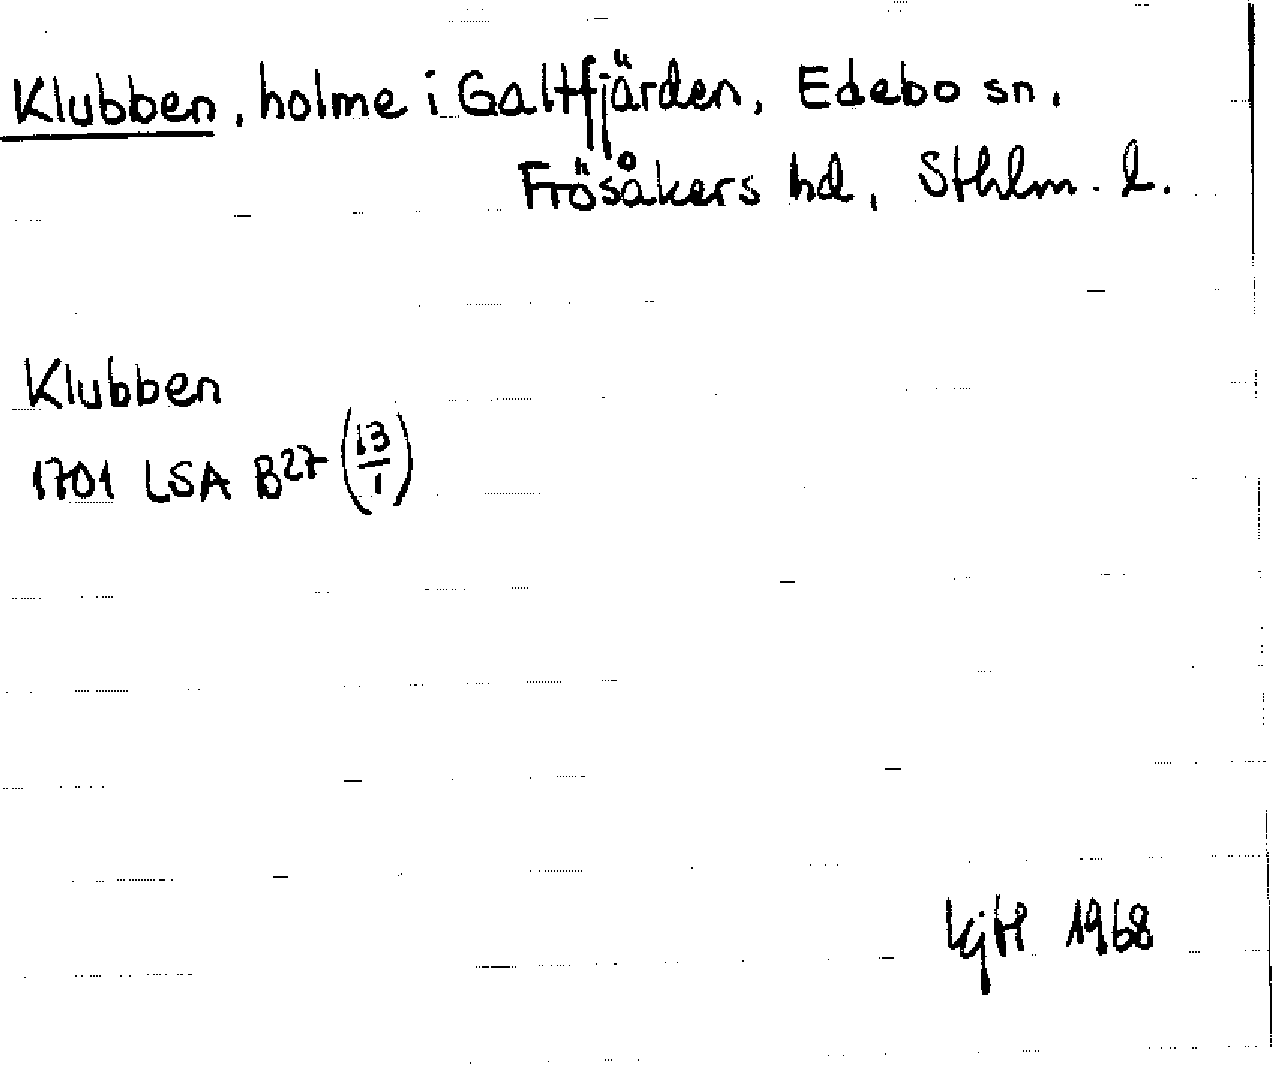 Klubben, holme i Galtfjärden, Edebo sn,
Frösåkers hd, Sthlm. l.
Klubben
1701 LSA B27 (13/1)
1968